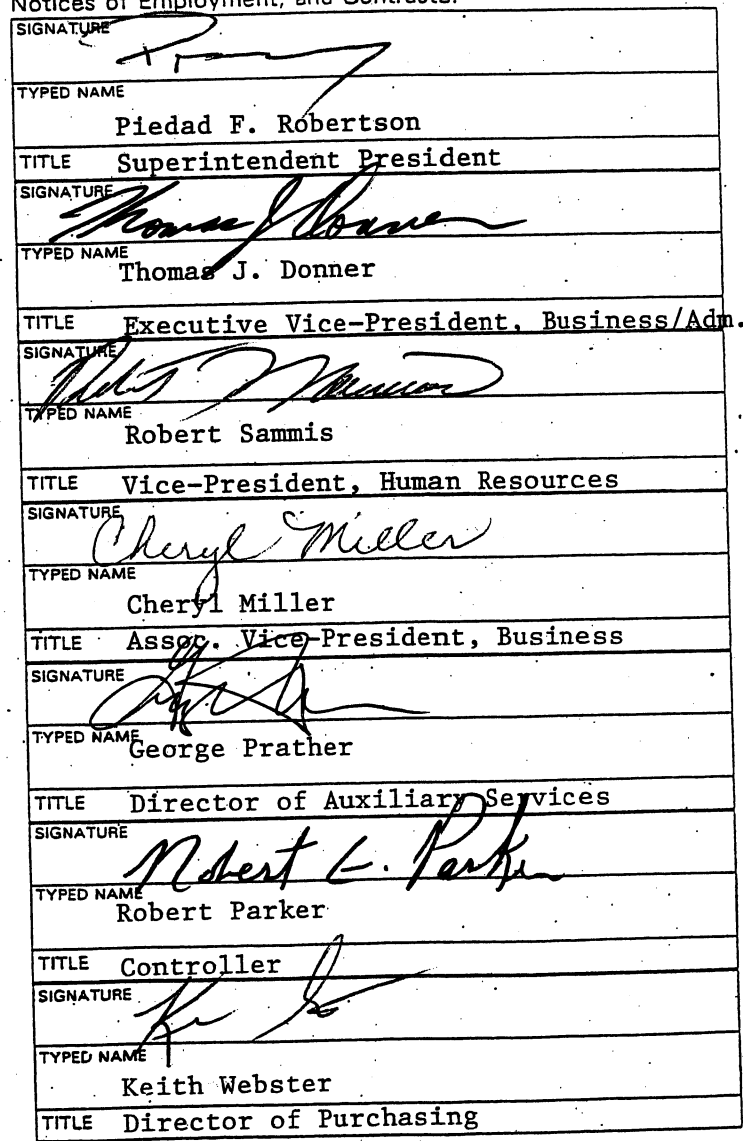 Notices of Employment, and Contracts.
SIGNATURE
TYPED NAME
Piedad F. Robertson
TITLE Superintendent President
SIGNATURE
Thomas J Donner
TYPED NAME
Thomas J. Donner
TITLE Executive Vice-President, Business/Adm.
SIGNATURE
TYPED NAME
Robert Sammis
TITLE Vice-President, Human Resources
SIGNATURE
Cheryl Miller
TYPED NAME
Cheryl Miller
TITLE Assoc. Vice-President, Business
SIGNATURE
TYPED NAME
George Prather
TITLE Director of Auxiliary Services
SIGNATURE
Robert G. Parker
TYPED NAME
Robert Parker
TITLE Controller
SIGNATURE
TYPED NAME
Keith Webster
TITLE Director of Purchasing